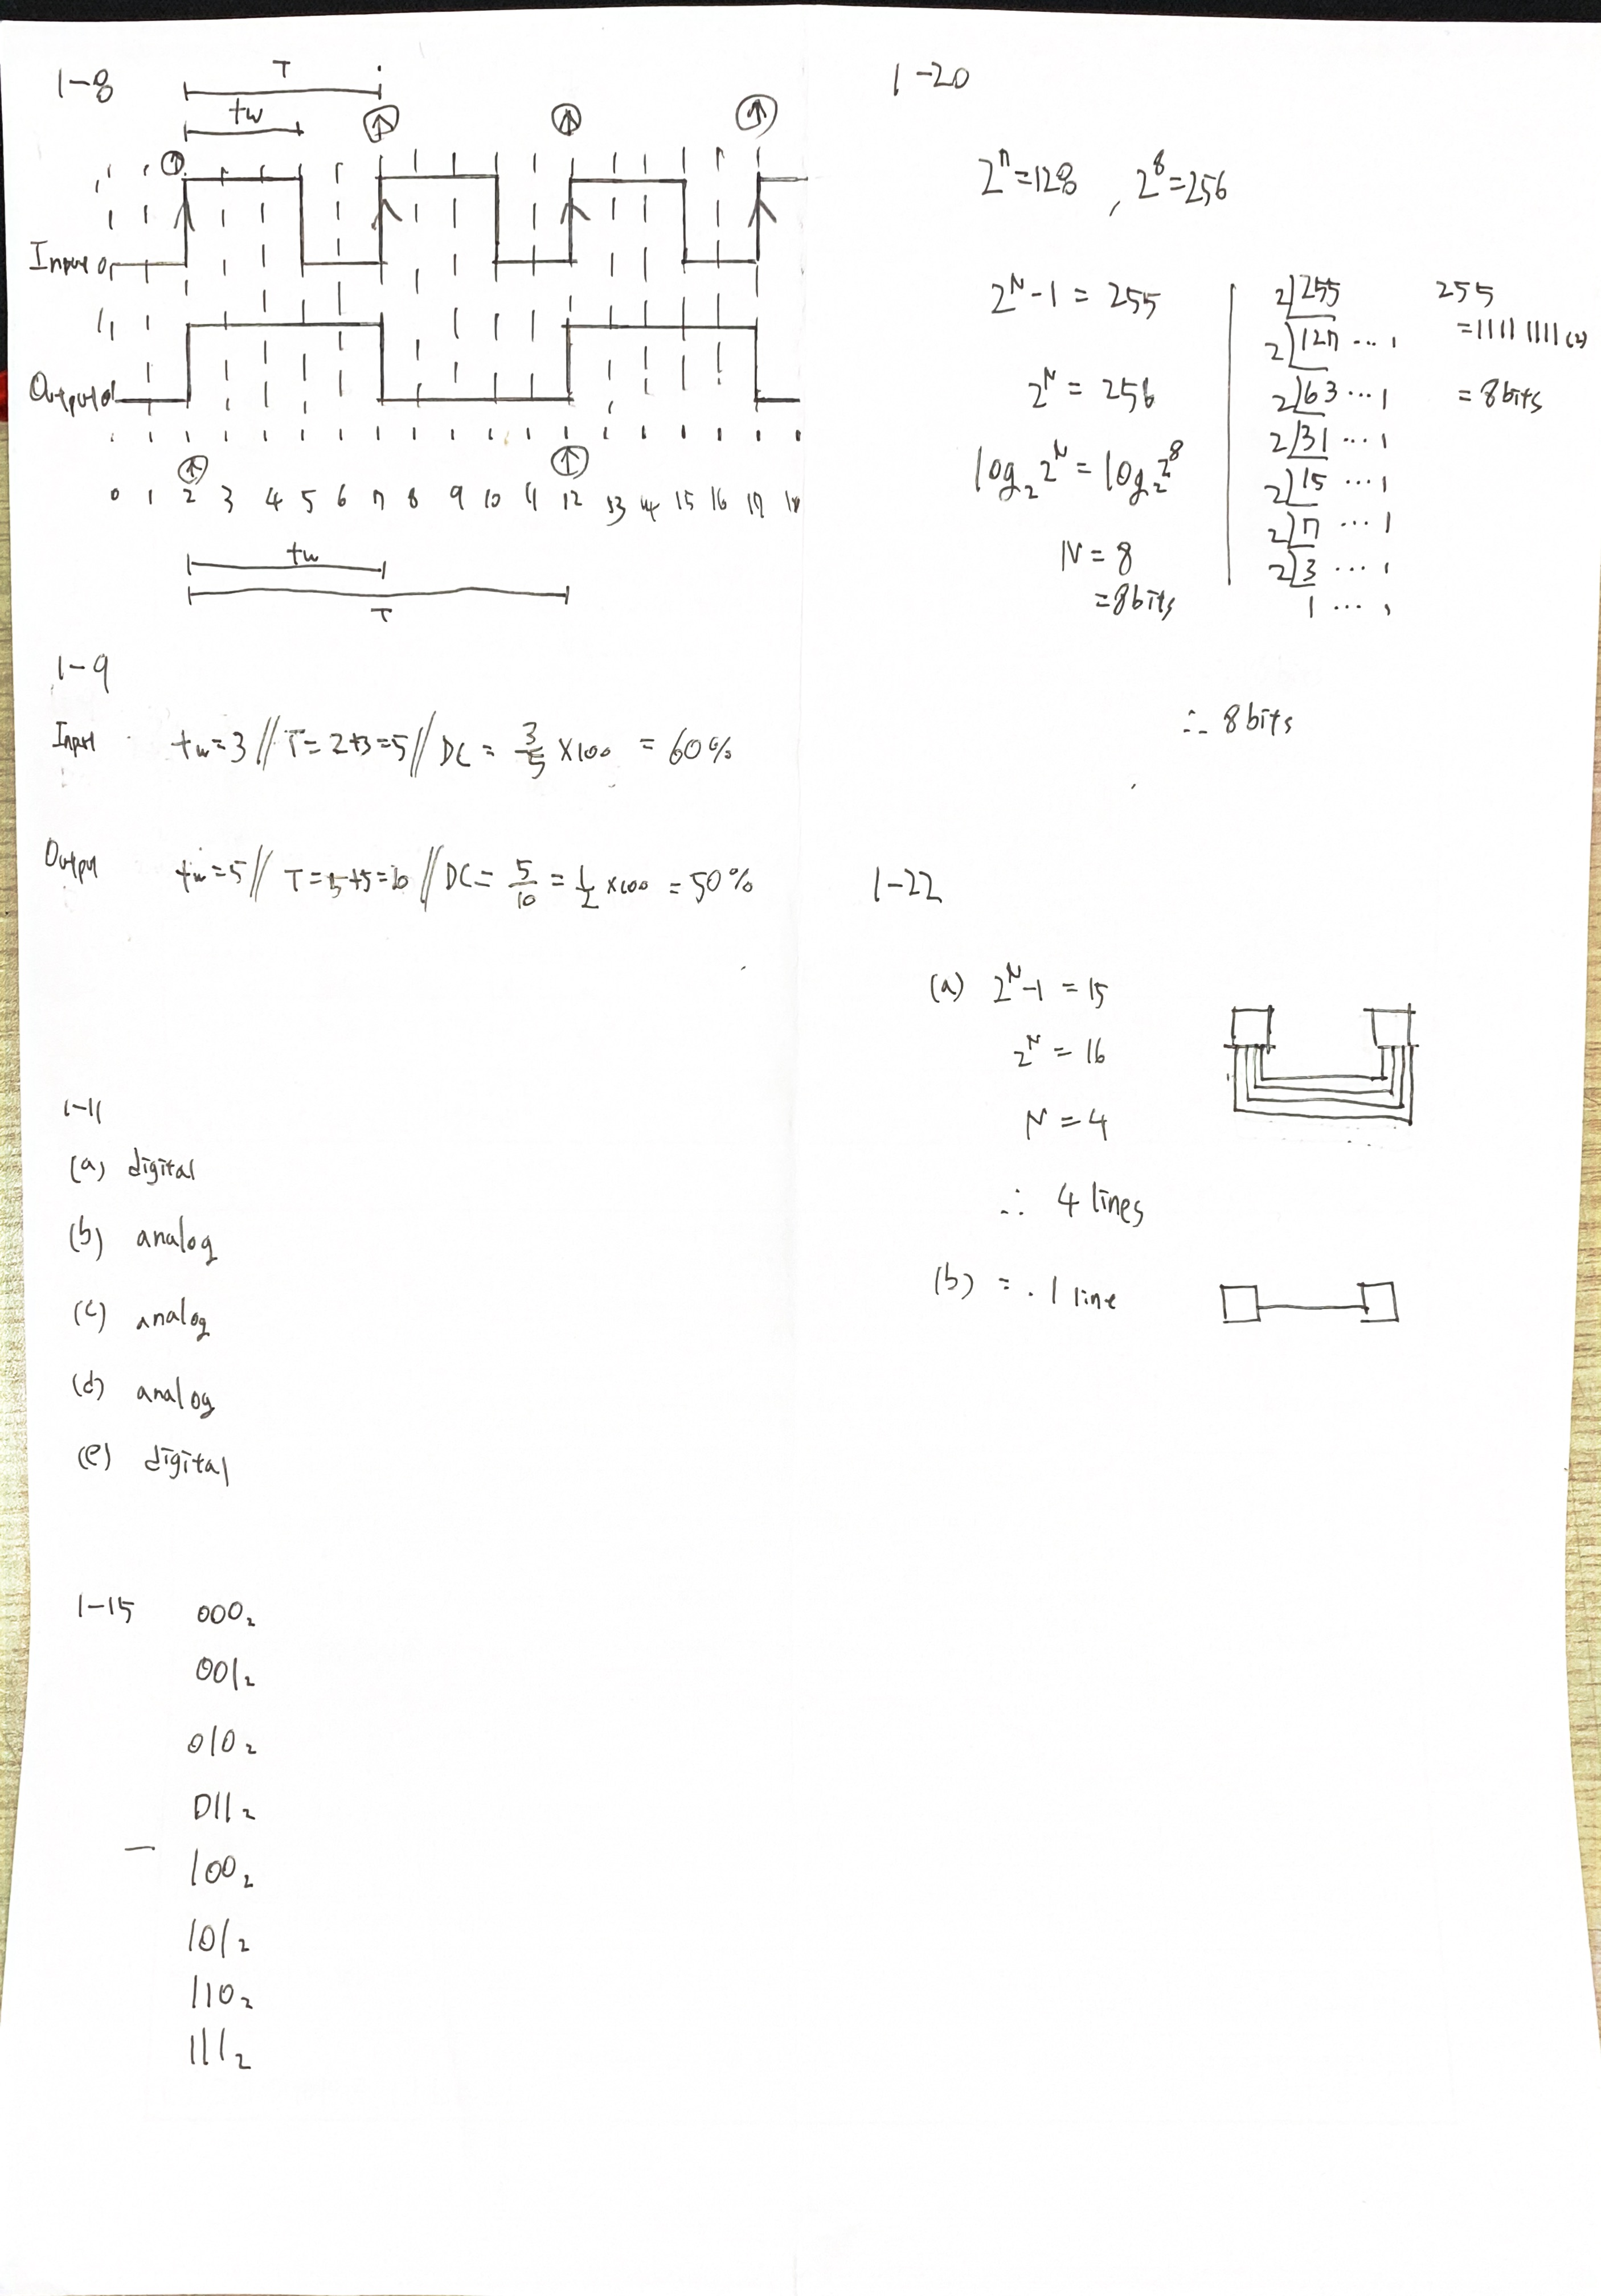 1-8
T
tw
Input 0
1
Output 0
0 1 2 3 4 5 6 7 8 9 10 11 12 13 14 15 16 17 18
tw
T
1-9
Input tw=3 // T=2+3=5 // DC = 3/5 ×100 = 60%
Output tw=5 // T=5+5=10 // DC = 5/10 = 1/2 ×100 = 50%
1-11
(a) digital
(b) analog
(c) analog
(d) analog
(e) digital
1-15 000₂
001₂
010₂
011₂
100₂
101₂
110₂
111₂
1-20
2⁷=128, 2⁸=256
2ᴺ-1 = 255
2ᴺ = 256
log₂2ᴺ = log₂2⁸
N = 8
= 8bits
2 255
2 127 ... 1
2 63 ... 1
2 31 ... 1
2 15 ... 1
2 7 ... 1
2 3 ... 1
1 ... 1
255
=1111 1111(2)
= 8bits
∴ 8 bits
1-22
(a) 2ᴺ-1 = 15
2ᴺ = 16
N = 4
∴ 4 lines
(b) = . 1 line